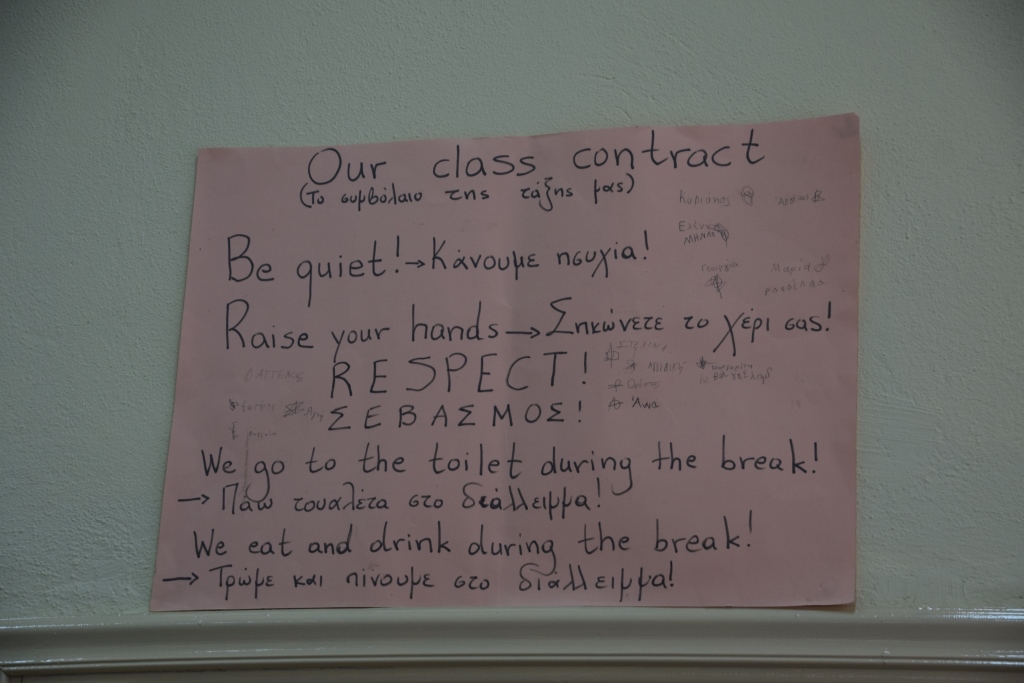 Our class contract
(Το συμβόλαιο της τάξης μας)
Κυριάκος
Be quiet! → Κάνουμε ησυχία!
Μαρία
Raise your hands → Σηκώνετε το χέρι σας!
RESPECT!
ΣΕΒΑΣΜΟΣ!
We go to the toilet during the break!
→ Πάω τουαλέτα στο διάλλειμμα!
We eat and drink during the break!
→ Τρώμε και πίνουμε στο διάλλειμμα!